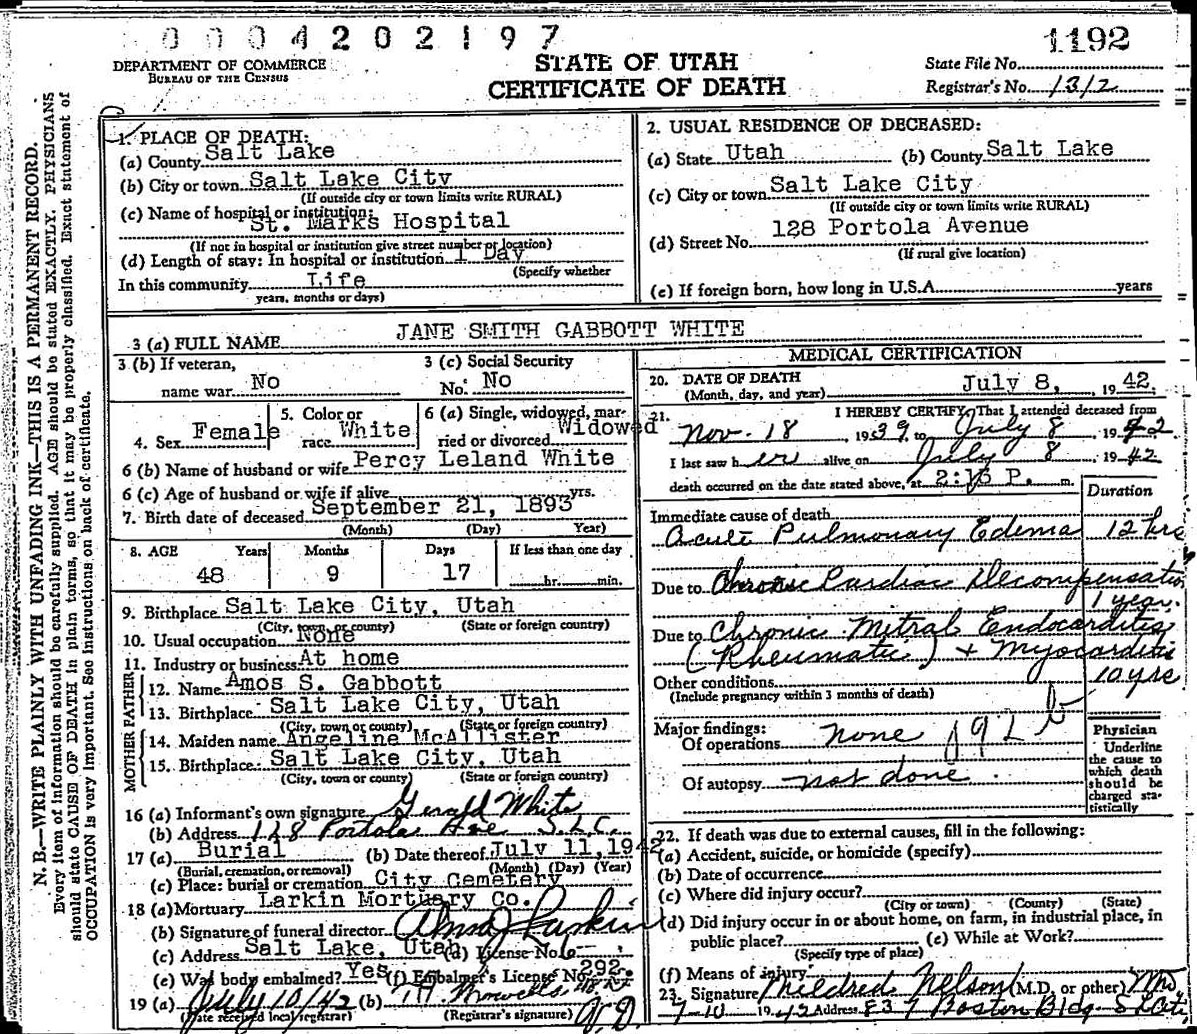 0004202197
1192
DEPARTMENT OF COMMERCE
BUREAU OF THE CENSUS
STATE OF UTAH
CERTIFICATE OF DEATH
State File No.
Registrar's No. 1312
N. B.—WRITE PLAINLY WITH UNFADING INK—THIS IS A PERMANENT RECORD.
Every item of information should be carefully supplied. AGE should be stated EXACTLY. PHYSICIANS
should state CAUSE OF DEATH in plain terms, so that it may be properly classified. Exact statement of
OCCUPATION is very important. See instructions on back of certificate.
1. PLACE OF DEATH:
(a) County Salt Lake
(b) City or town Salt Lake City
(If outside city or town limits write RURAL)
(c) Name of hospital or institution:
St. Marks Hospital
(If not in hospital or institution give street number or location)
(d) Length of stay: In hospital or institution 1 Day
(Specify whether
In this community Life
years, months or days)
2. USUAL RESIDENCE OF DECEASED:
(a) State Utah (b) County Salt Lake
(c) City or town Salt Lake City
(If outside city or town limits write RURAL)
(d) Street No. 128 Portola Avenue
(If rural give location)
(e) If foreign born, how long in U.S.A. years
3 (a) FULL NAME JANE SMITH GABBOTT WHITE
3 (b) If veteran, 3 (c) Social Security
name war No No. No
4. Sex Female 5. Color or race White 6 (a) Single, widowed, married or divorced Widowed
6 (b) Name of husband or wife Percy Leland White
6 (c) Age of husband or wife if alive yrs.
7. Birth date of deceased September 21, 1893
(Month) (Day) Year)
8. AGE Years Months Days If less than one day
48 9 17 hr. min.
9. Birthplace Salt Lake City, Utah
(City, town, or county) (State or foreign country)
10. Usual occupation None
11. Industry or business At home
FATHER
12. Name Amos S. Gabbott
13. Birthplace Salt Lake City, Utah
(City, town or county) (State or foreign country)
MOTHER
14. Maiden name Angeline McAllister
15. Birthplace Salt Lake City, Utah
(City, town or county) (State or foreign country)
16 (a) Informant's own signature Gerald White
(b) Address 128 Portola Ave S.L.C.
17 (a) Burial (b) Date thereof July 11, 1942
(Burial, cremation, or removal) (Month) (Day) (Year)
(c) Place: burial or cremation City Cemetery
18 (a) Mortuary Larkin Mortuary Co.
(b) Signature of funeral director Alma J Larkin
(c) Address Salt Lake, Utah (d) License No.
(e) Was body embalmed? Yes (f) Embalmer's License No. 292
19 (a) July 10/42 (b)
(Date received local registrar) (Registrar's signature)
MEDICAL CERTIFICATION
20. DATE OF DEATH July 8, 1942
(Month, day, and year)
21. I HEREBY CERTIFY, That I attended deceased from
Nov. 18 1939 to July 8 1942
I last saw her alive on July 8 1942
death occurred on the date stated above, at P. m.
Duration
Immediate cause of death
Acute Pulmonary Edema 12 hrs
Due to Chronic Cardiac Decompensation
1 year.
Due to Chronic Mitral Endocarditis
(Rheumatic) + Myocarditis
10 yrs
Other conditions
(Include pregnancy within 3 months of death)
Major findings:
Of operations none
Of autopsy not done.
Physician
Underline
the cause to
which death
should be
charged sta-
tistically
22. If death was due to external causes, fill in the following:
(a) Accident, suicide, or homicide (specify)
(b) Date of occurrence
(c) Where did injury occur?
(City or town) (County) (State)
(d) Did injury occur in or about home, on farm, in industrial place, in
public place? (e) While at Work?
(Specify type of place)
(f) Means of injury
23. Signature Mildred Nelson (M.D. or other) MD
7-10 1942 Address 837 Boston Bldg